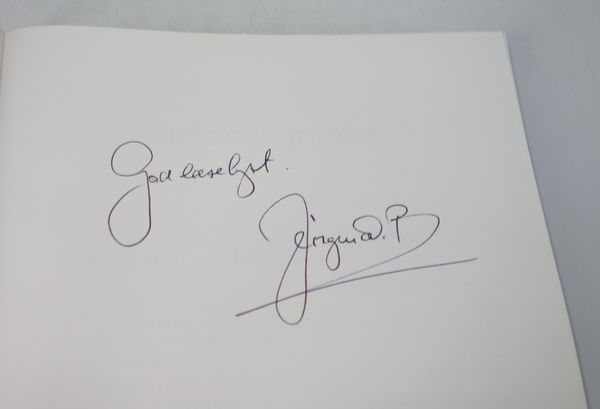 God læselyst.
Jörgen W. B